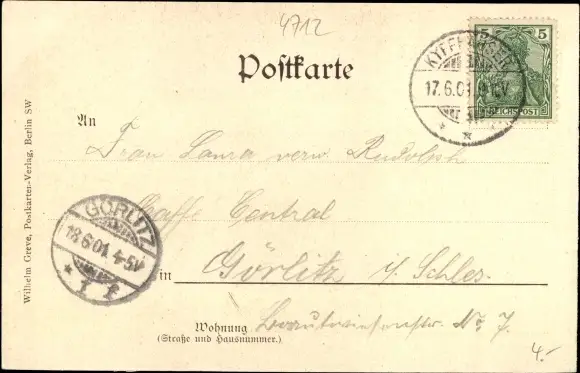 4712
Postkarte
5 5
REICHSPOST
KYFFHÄUSER
17.6.01
An
Frau Laura verw. Rudolph
Caffe Central
in Görlitz i/Schles.
GÖRLITZ
18.6.01 4-5N
* 1 f
Wohnung No 7.
(Straße und Hausnummer.)
4.-
Wilhelm Greve, Postkarten-Verlag, Berlin SW